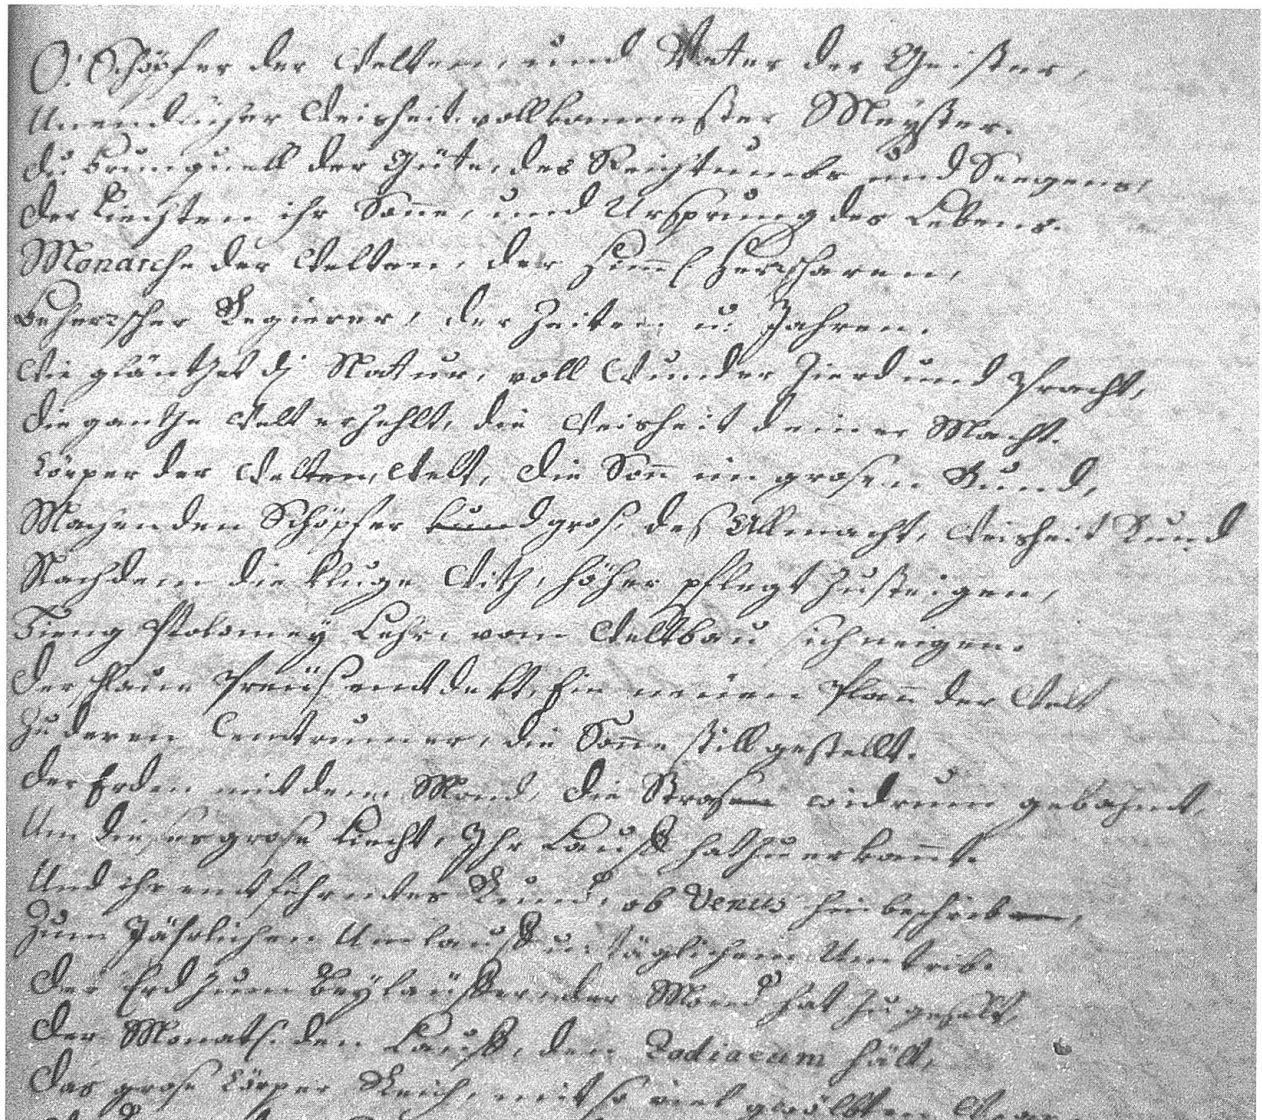 O! Schöpfer der Welten, und Vater der Geister,
Unendlicher Weisheit vollkommester Meÿster.
du Brunquell der Güte, des Reichtumbs und Seegens,
der Liechten ihr Sonne, und Ursprung des Lebens.
Monarche der Welten, der Himml. Herscharen,
beherscher Regierer, der Zeiten u. Jahren.
Wie gläntzet di Natur, voll Wunder Zierd und Pracht,
die gantze Welt erzehlt, die Weisheit deiner Macht.
Körper der Welten, Welt, die Sonn im grosen Rund,
Machen den Schöpfer gros, des Allmacht, Weisheit Kund
Nachdem die kluge Witz, höher pflegt zusteigen,
Fieng Ptolomeÿ Lehr, vom Weltbau sich neigen.
der Preüs entdekt, Ein neüen Plann der Welt
Zu deren Centrum er, die Sonne still gestellt.
der Erden mit dem Mond, die Stras widrum gebahnt,
Um dieses grose Liecht, Ihr Lauff erkannt.
Und ihr entfehrntes Rund, ob Venus hin beschrieb,
Zum Jährlichen Umlauff u. täglichem Umtrib.
der Erd zum Beÿläuffer der Mond hat zugesellt
der Monats den Lauff, den Zodiacum hält,
das grose Körper Reich, mit so viel gewölbten